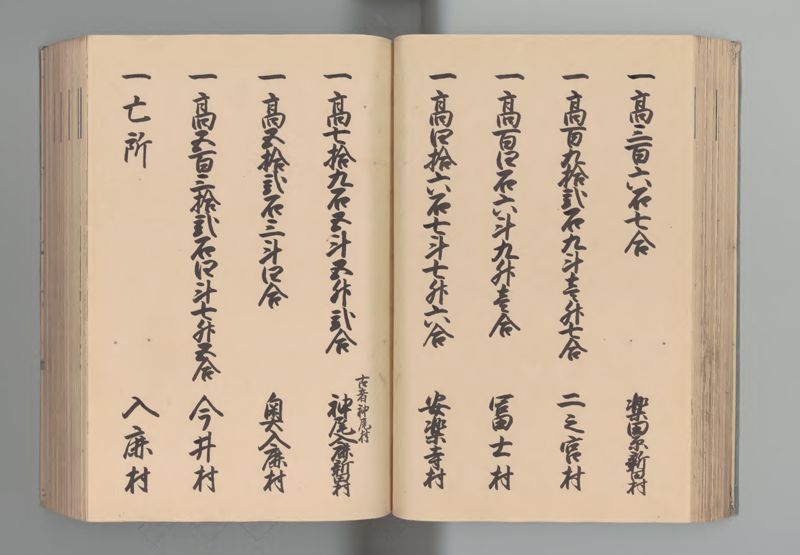 一高三百六石七合 楽田原新田村
一高百九拾弐石九斗壱升七合 二之宮村
一高百四石六斗九升壱合 冨士村
一高四拾六石七斗七升六合 安楽寺村
一高七拾九石五斗五升弐合 神尾入鹿新田村
古者神尾村
一高五拾弐石三斗四合 奥入鹿村
一高五百三拾弐石四斗七升五合 今井村
一亡所 入鹿村